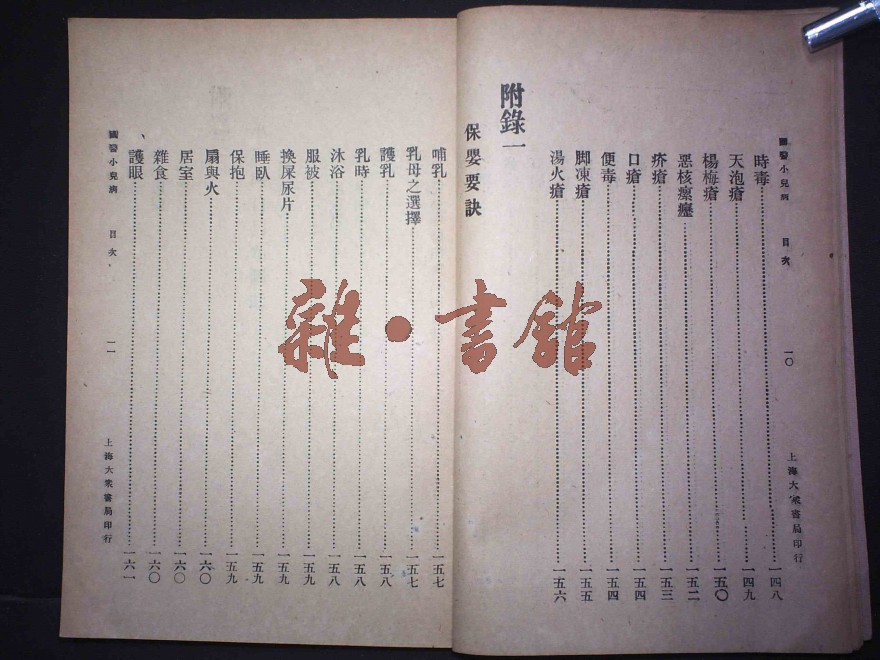 國醫小兒病　目次　一〇　上海大衆書局印行
時毒 一四八
天泡瘡 一四九
楊梅瘡 一五〇
惡核瘰癧 一五二
疥瘡 一五三
口瘡 一五四
便毒 一五四
脚凍瘡 一五五
湯火瘡 一五六
附錄一
保嬰要訣
哺乳 一五七
乳母之選擇 一五七
護乳 一五八
乳時 一五八
沐浴 一五八
服被 一五九
換屎尿片 一五九
睡臥 一五九
保抱 一五九
扇與火 一六〇
居室 一六〇
雜食 一六〇
護眼 一六一
國醫小兒病　目次　一一　上海大衆書局印行
雜·書館